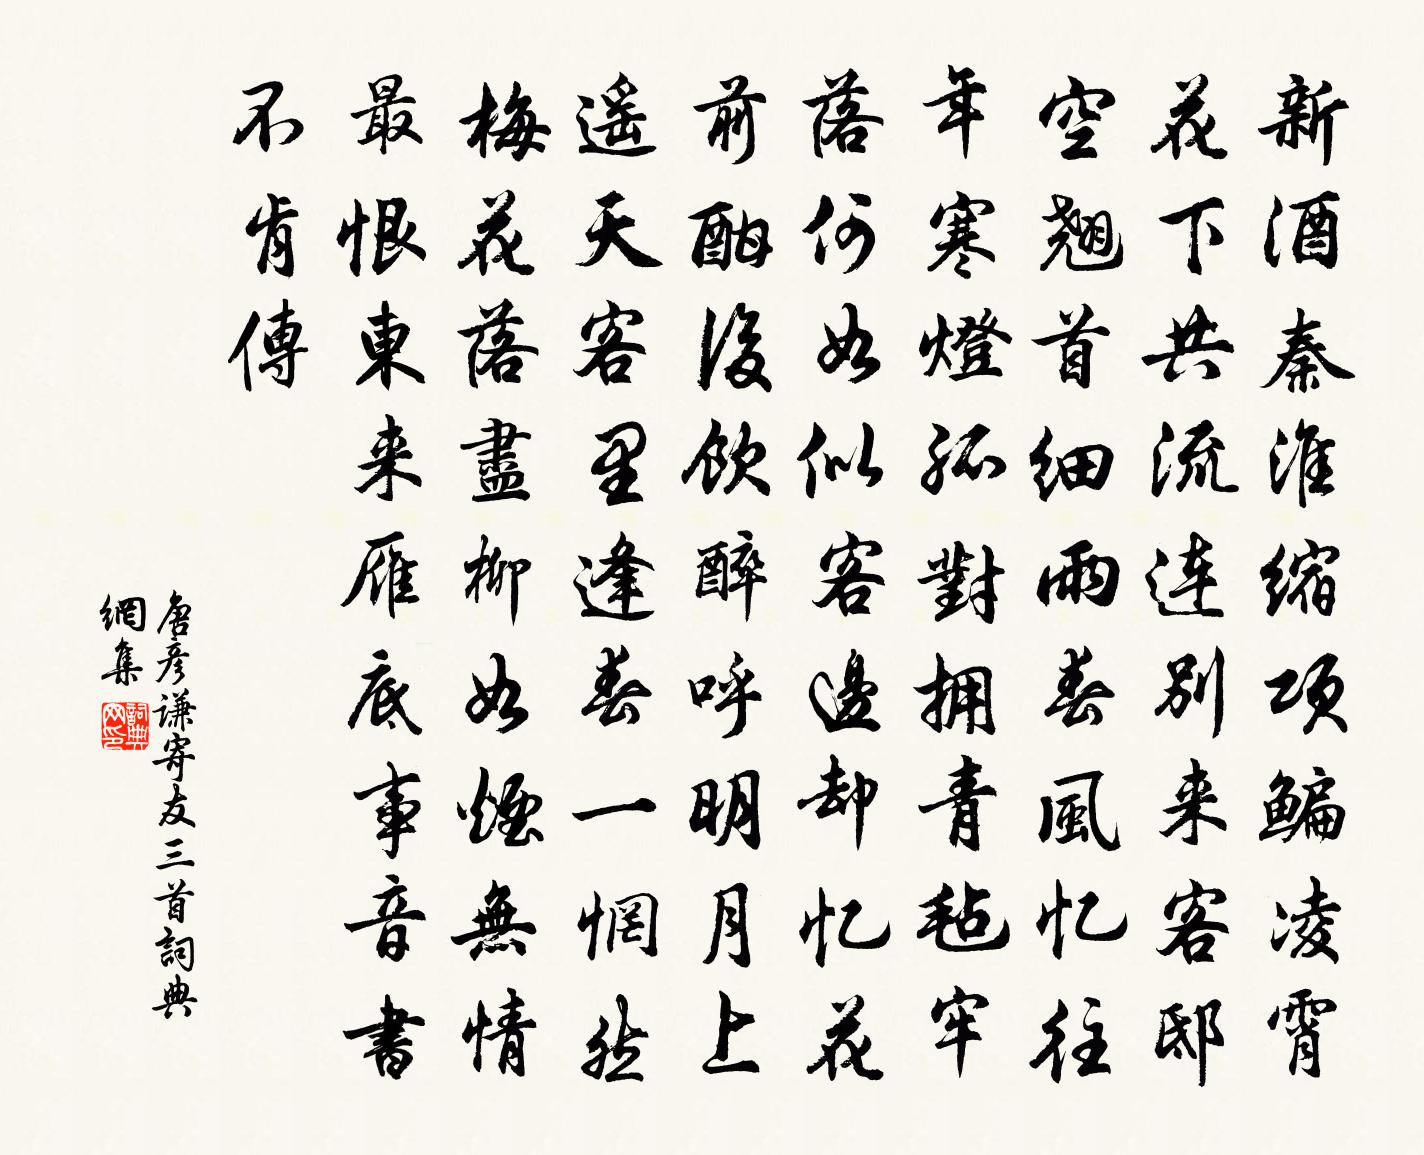 新酒秦淮缩项鳊凌霄
花下共流连别来客邸
空翘首细雨春風忆往
年寒燈孤對拥青毡牢
落何如似客邊却忆花
前酣後飲醉呼明月上
遥天客里逢春一惘然
梅花落盡柳如煙無情
最恨東来雁底事音書
不肯傳
唐彦谦寄友三首詞典
網集